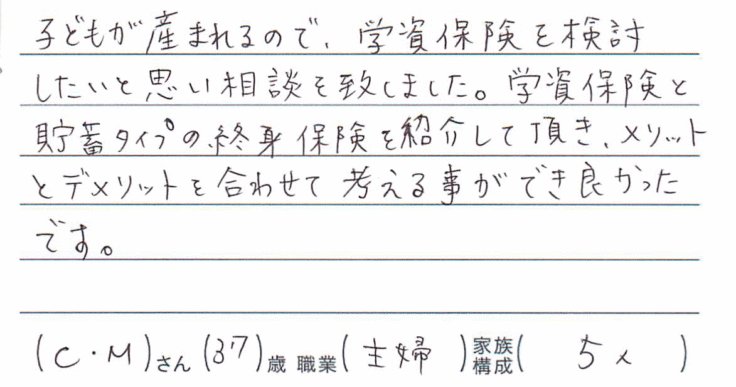 子どもが産まれるので、学資保険を検討
したいと思い相談を致しました。学資保険と
貯蓄タイプの終身保険を紹介して頂き、メリット
とデメリットを合わせて考える事ができ良かった
です。
(C・M)さん(37)歳 職業(主婦)家族構成(5人)